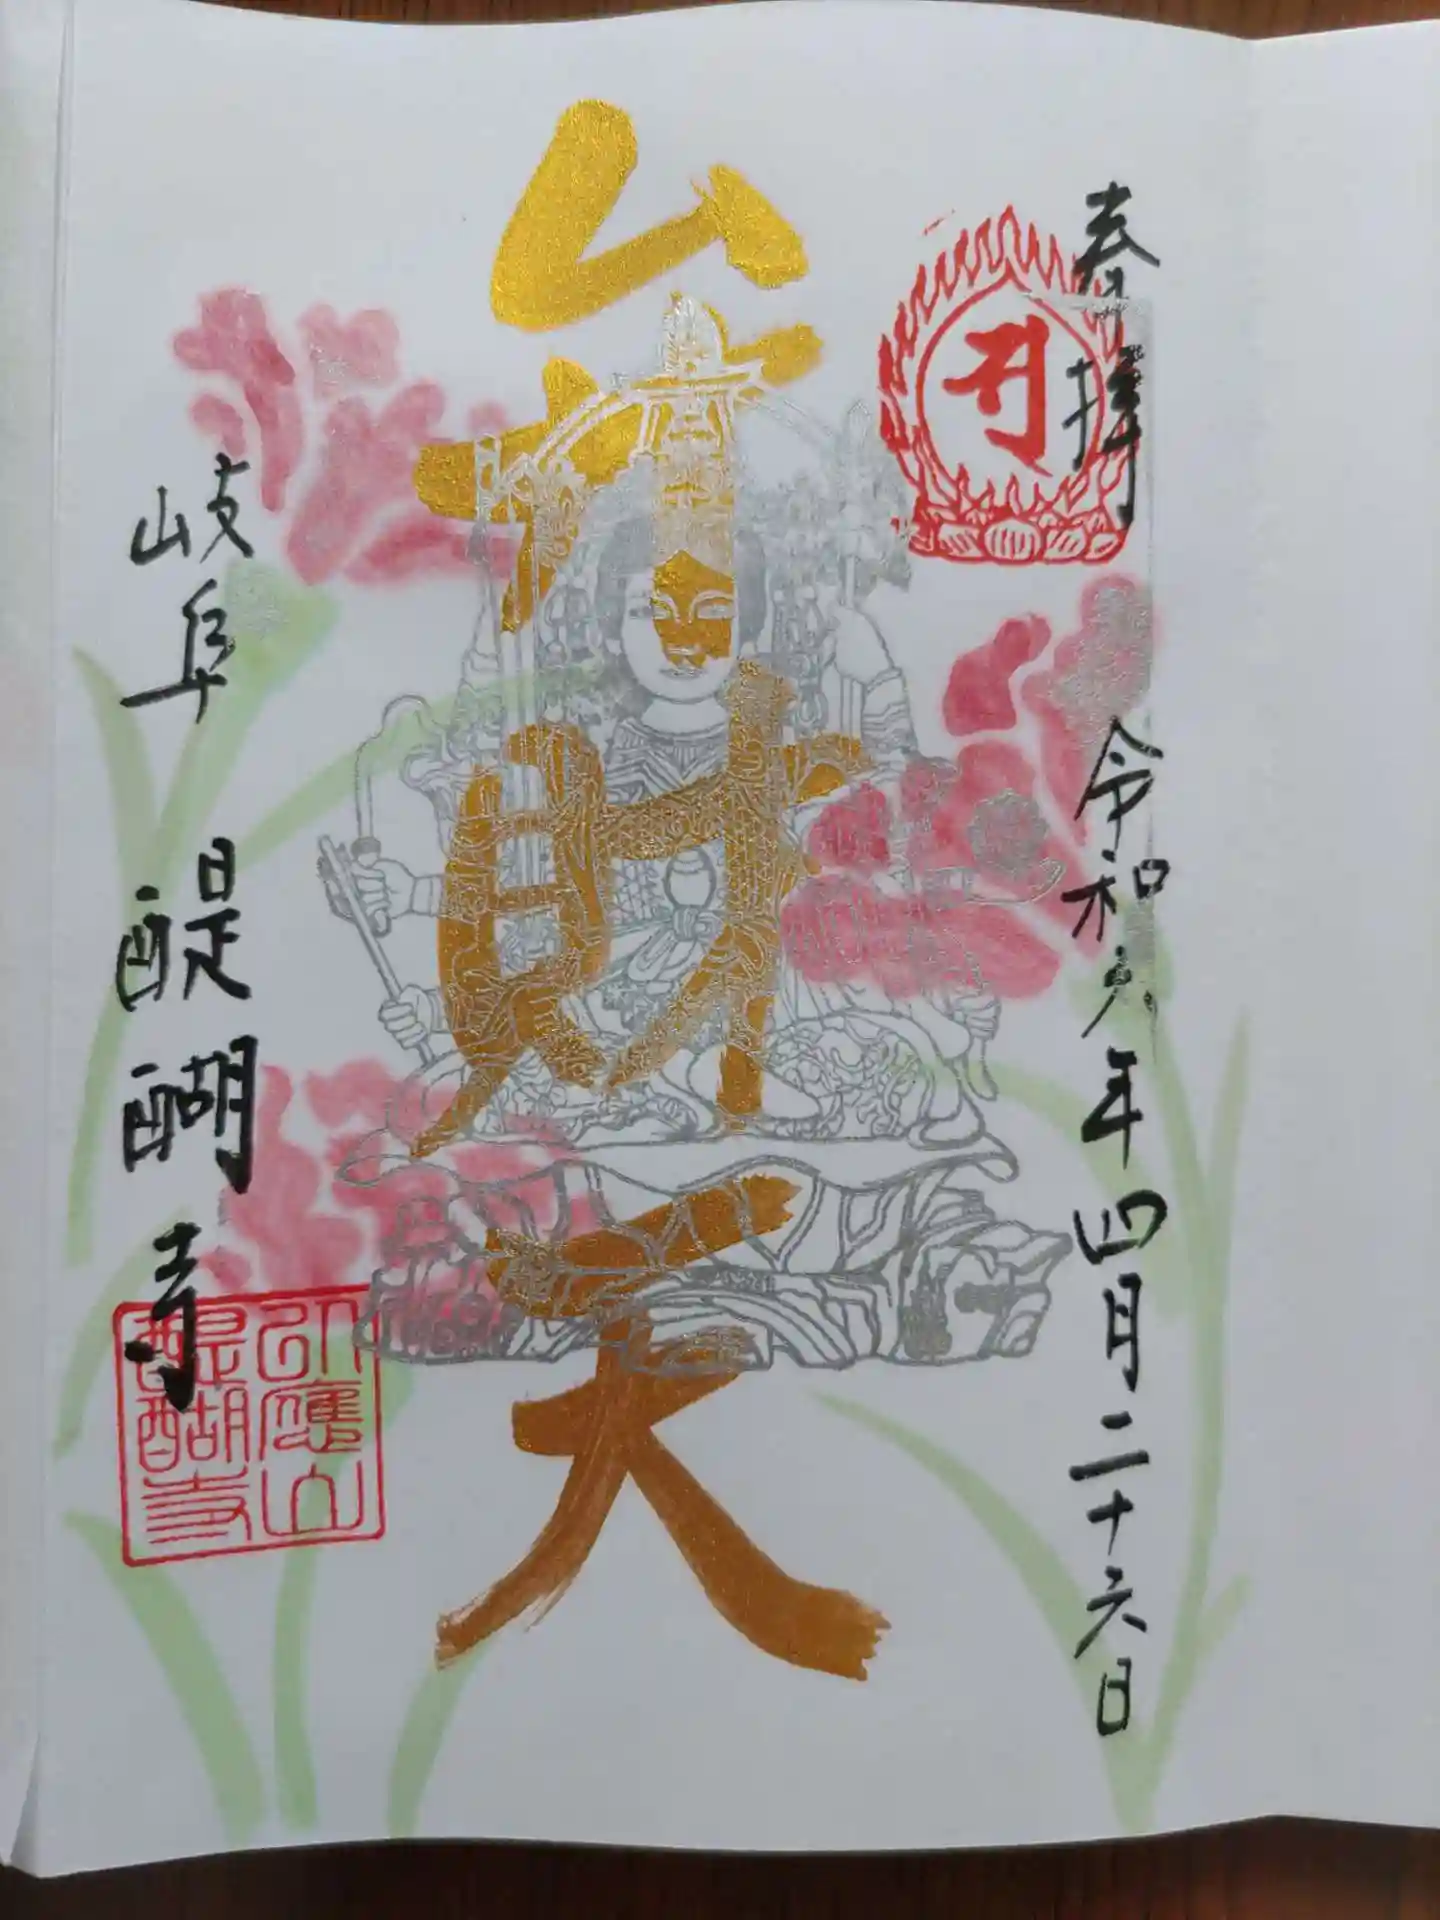 奉拝
令和六年四月二十六日
弁財天
岐阜
醍醐寺
引應山
醍醐寺